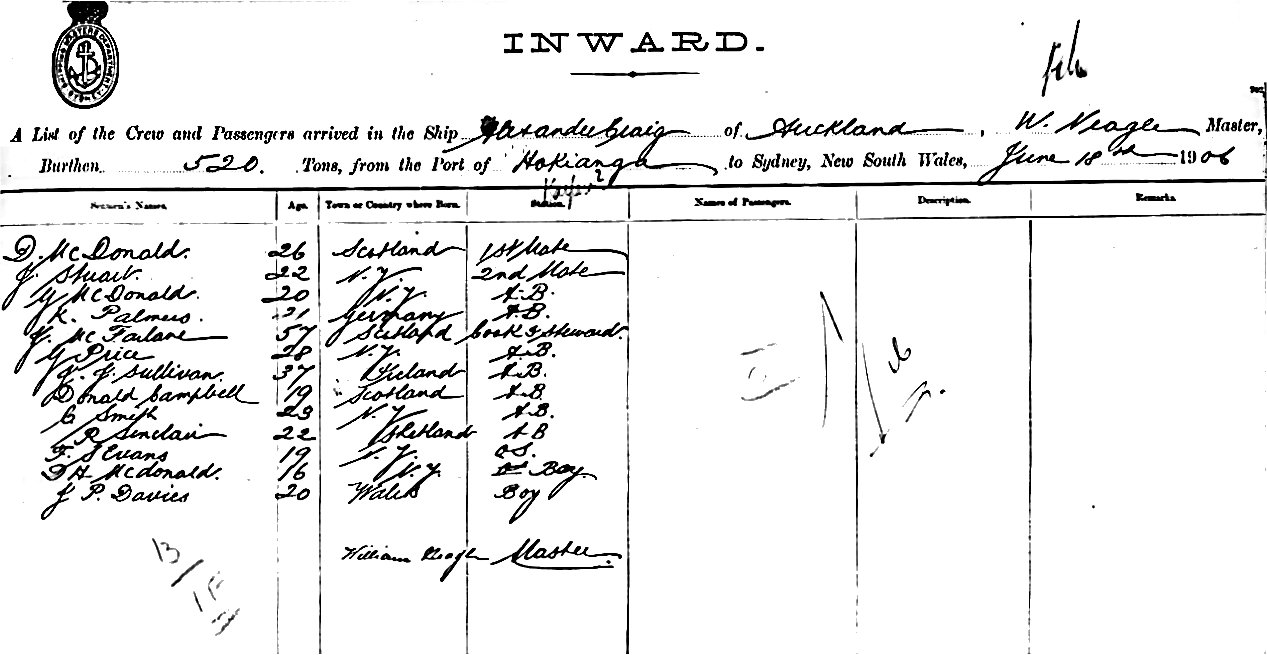 SHIPPING MASTERS DEPARTMENT SYDNEY
INWARD.
A List of the Crew and Passengers arrived in the Ship Alexander Craig of Auckland, W. Neagle Master,
Burthen 520. Tons, from the Port of Hokianga to Sydney, New South Wales, June 18th 1906
Seamen's Names. Age. Town or Country where Born. Station. Names of Passengers. Description. Remarks.
D. McDonald. 26 Scotland 1st Mate
J. Stuart. 22 N.Z. 2nd Mate
G McDonald. 20 N.Z. A.B.
K. Palmers. 21 Germany A.B.
J. McFarlane 57 Scotland Cook & Steward.
G Price 28 N.Z. A.B.
J. J. Sullivan. 37 Ireland A.B.
Donald Campbell 19 Scotland A.B
C Smith 23 N.Z A.B.
R Sinclair 22 Shetland A B
F. S Evans 19 N.Z. O.S.
D H. Mcdonald. 16 N.Z. Boy.
J P. Davies 20 Wales Boy
William Neagle Master
13